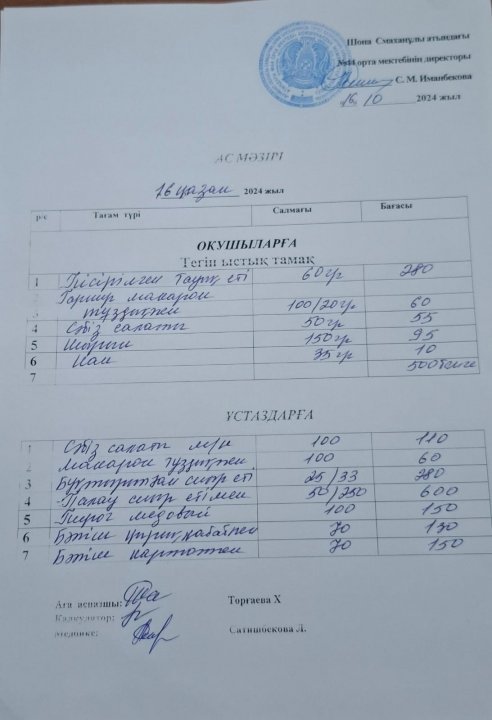 Шона Смаханұлы атындағы
№44 орта мектебінің директоры
С. М. Иманбекова
16. 10 2024 жыл
АС МӘЗІРІ
16 қазан 2024 жыл
р/с Тағам түрі Салмағы Бағасы
ОҚУШЫЛАРҒА
Тегін ыстық тамақ
1 Пісірілген тауық еті 60 гр 280
2 Гарнир макарон
3 тұздықпен 100/20 гр 60
4 Сәбіз салаты 50 гр 55
5 150 гр 95
6 Нан 35 гр 10
7 500 теңге
ҰСТАЗДАРҒА
1 Сәбіз салаты 100 110
2 Макарон тұздықпен 100 60
3 сиыр еті 25/33 280
4 Палау сиыр етімен 50/250 600
5 Пирог медовый 100 150
6 Бәліш 70 130
7 Бәліш картоппен 70 150
Аға аспазшы: Торғаева Х
Калкулятор:
Медбике: Сатишбекова Л.